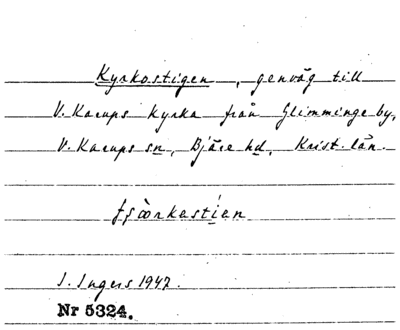 Kyrkostigen, genväg till
V. Karups kyrka från Glimminge by,
V. Karups sn, Bjäre hd, Krist. län.
I. Ingers 1947.
Nr 5324.